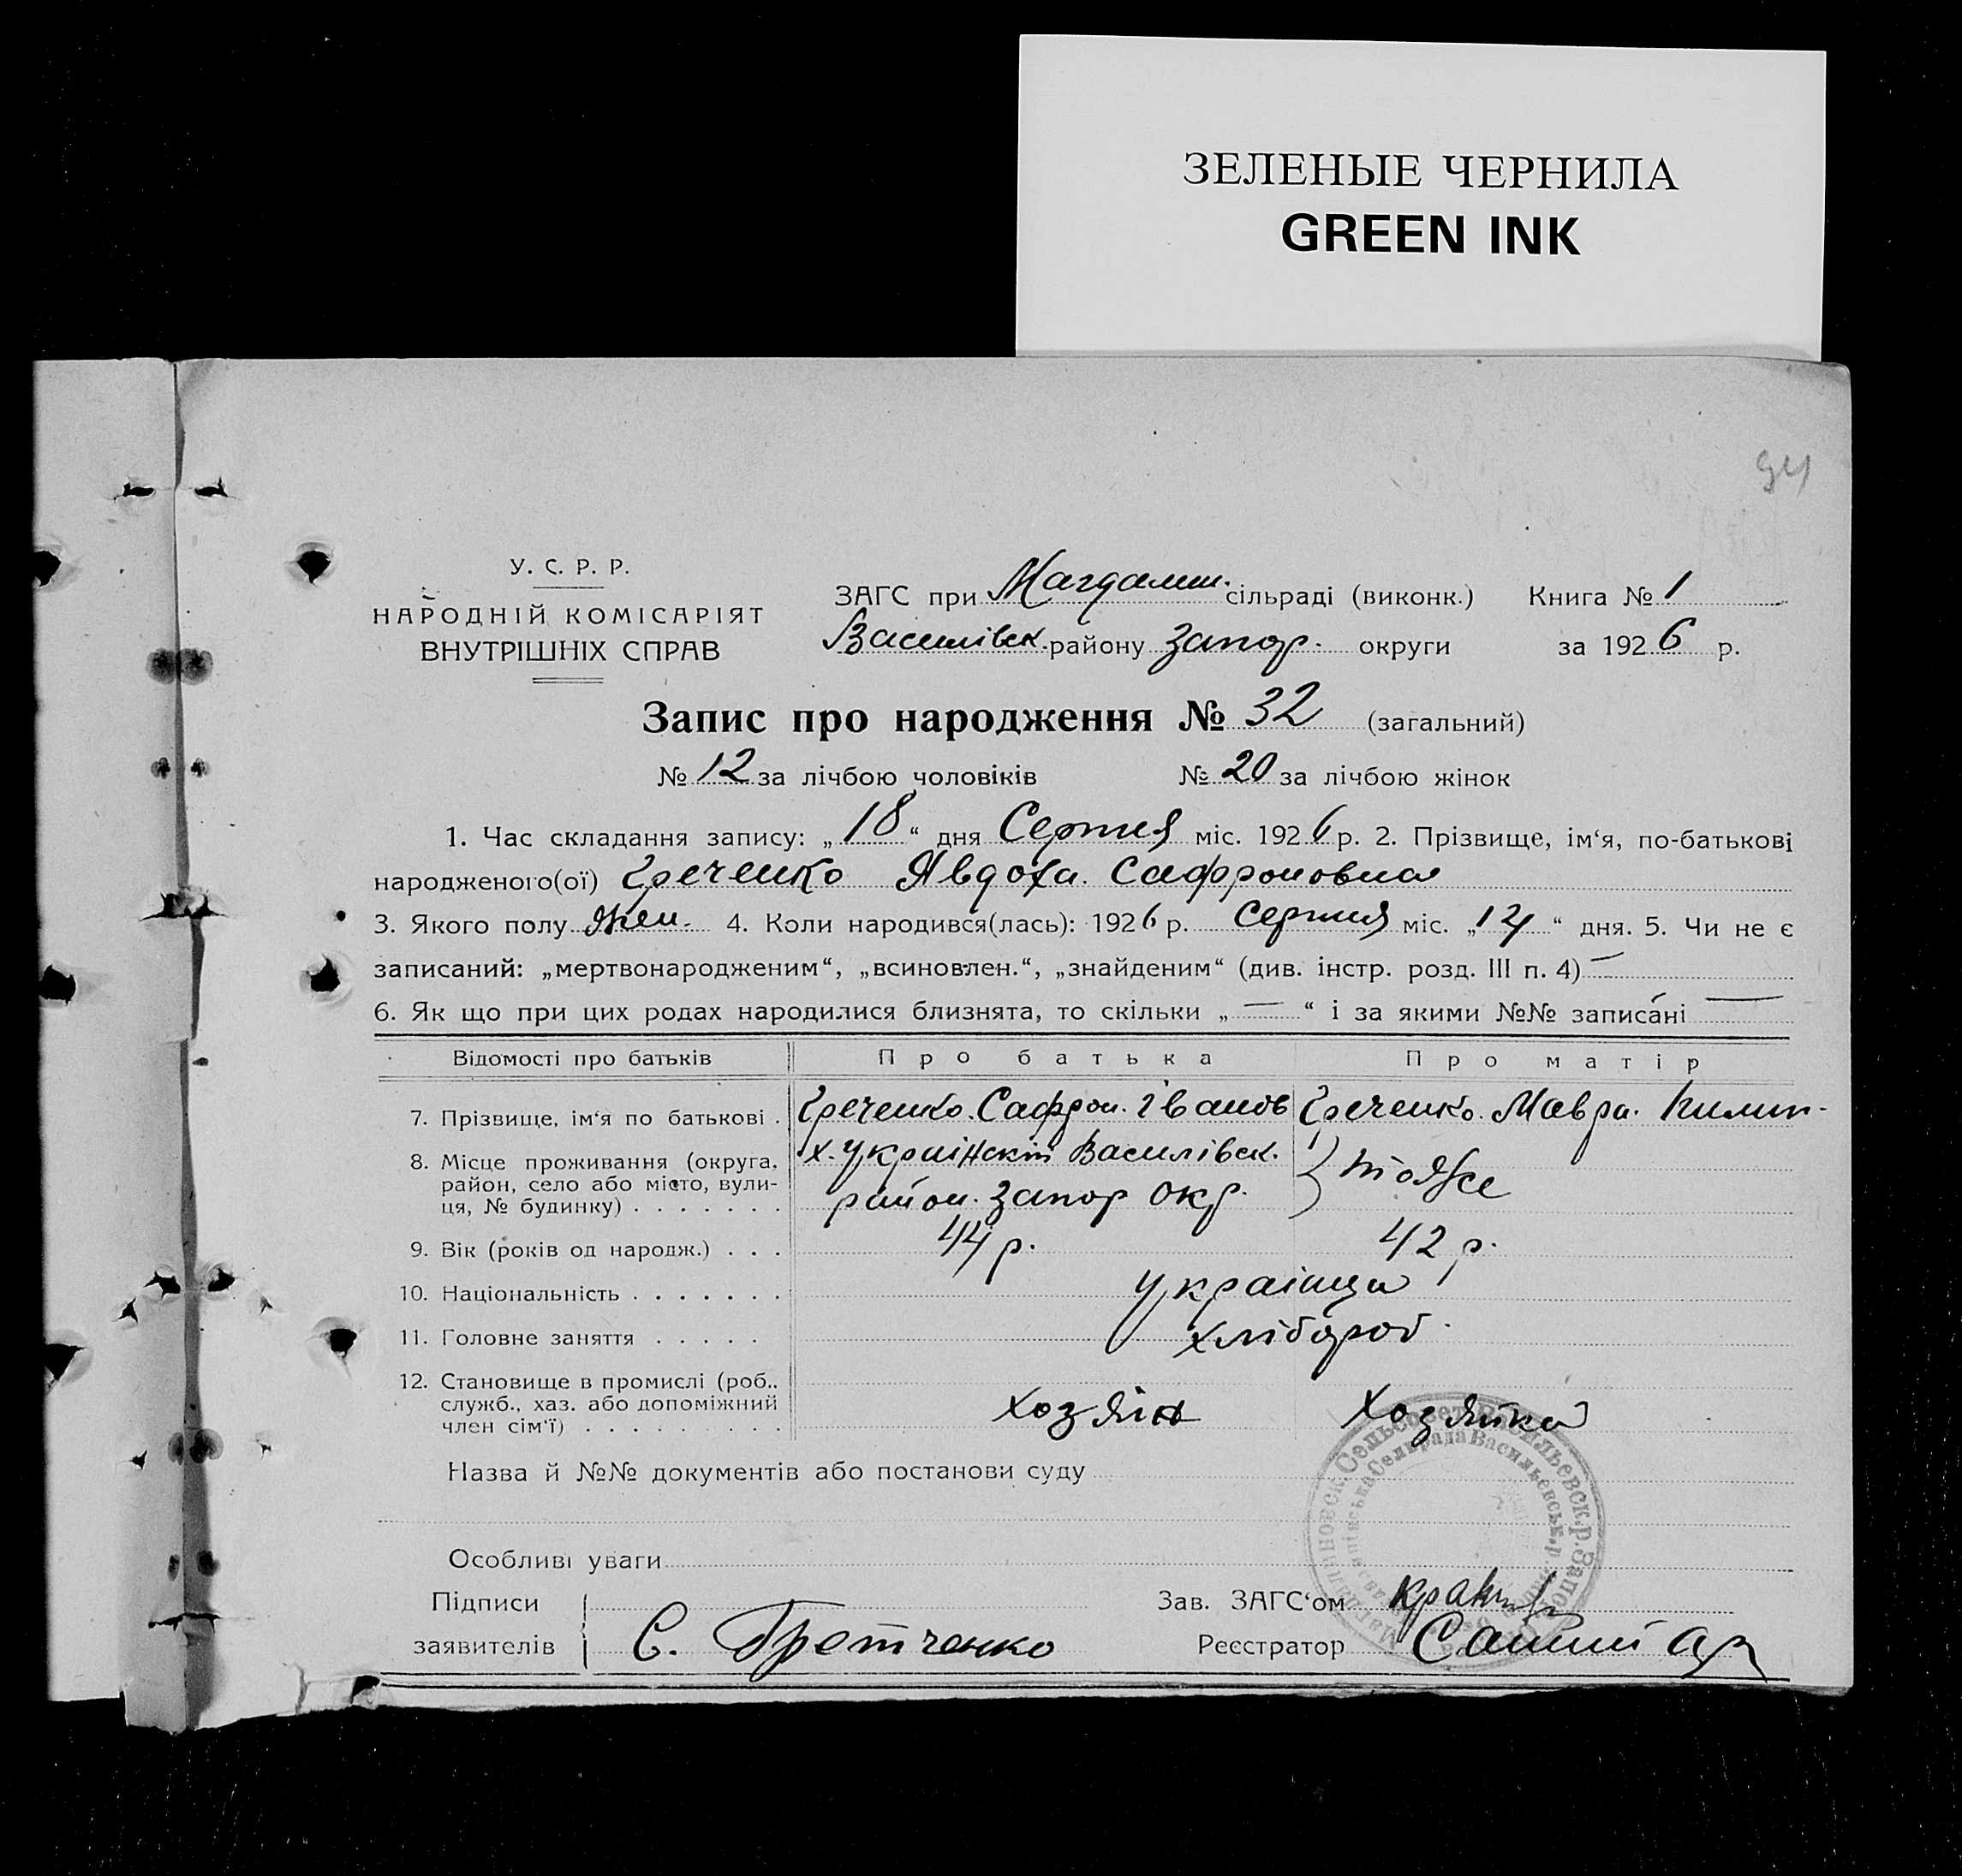 ЗЕЛЕНЫЕ ЧЕРНИЛА
GREEN INK
94
У. С. Р. Р.
НАРОДНІЙ КОМІСАРІЯТ
ВНУТРІШНІХ СПРАВ
ЗАГС при Магдалин. сільраді (виконк.) Книга № 1
Василівск. району Запор. округи за 1926 р.
Запис про народження № 32 (загальний)
№ 12 за лічбою чоловіків № 20 за лічбою жінок
1. Час складання запису: „18“ дня Серпня міс. 1926 р. 2. Прізвище, ім‘я, по-батькові
народженого(ої) Греченко Явдоха Сафроновна
3. Якого полу Жен. 4. Коли народився(лась): 1926 р. Серпня міс. „14“ дня. 5. Чи не є
записаний: „мертвонародженим“, „всиновлен.“, „знайденим“ (див. інстр. розд. III п. 4) —
6. Як що при цих родах народилися близнята, то скільки „—“ і за якими №№ записані —
Відомості про батьків Про батька Про матір
7. Прізвище, ім‘я по батькові . Греченко. Сафрон. Іванов Греченко. Мавра. Килип-
8. Місце проживання (округа, район, село або місто, вулиця, № будинку) . . . . . . . х. Українскій Василівск. район. Запор окр. тояже
9. Вік (років од народж.) . . . 44 р. 42 р.
10. Національність . . . . . . . українци
11. Головне заняття . . . . . хлібороб.
12. Становище в промислі (роб., служб., хаз. або допоміжний член сім‘ї) . . . . . . . . . Хозяін Хозяйка
Назва й №№ документів або постанови суду
Особливі уваги
Підписи
заявителів С. Гретченко
Зав. ЗАГС‘ом
Реєстратор